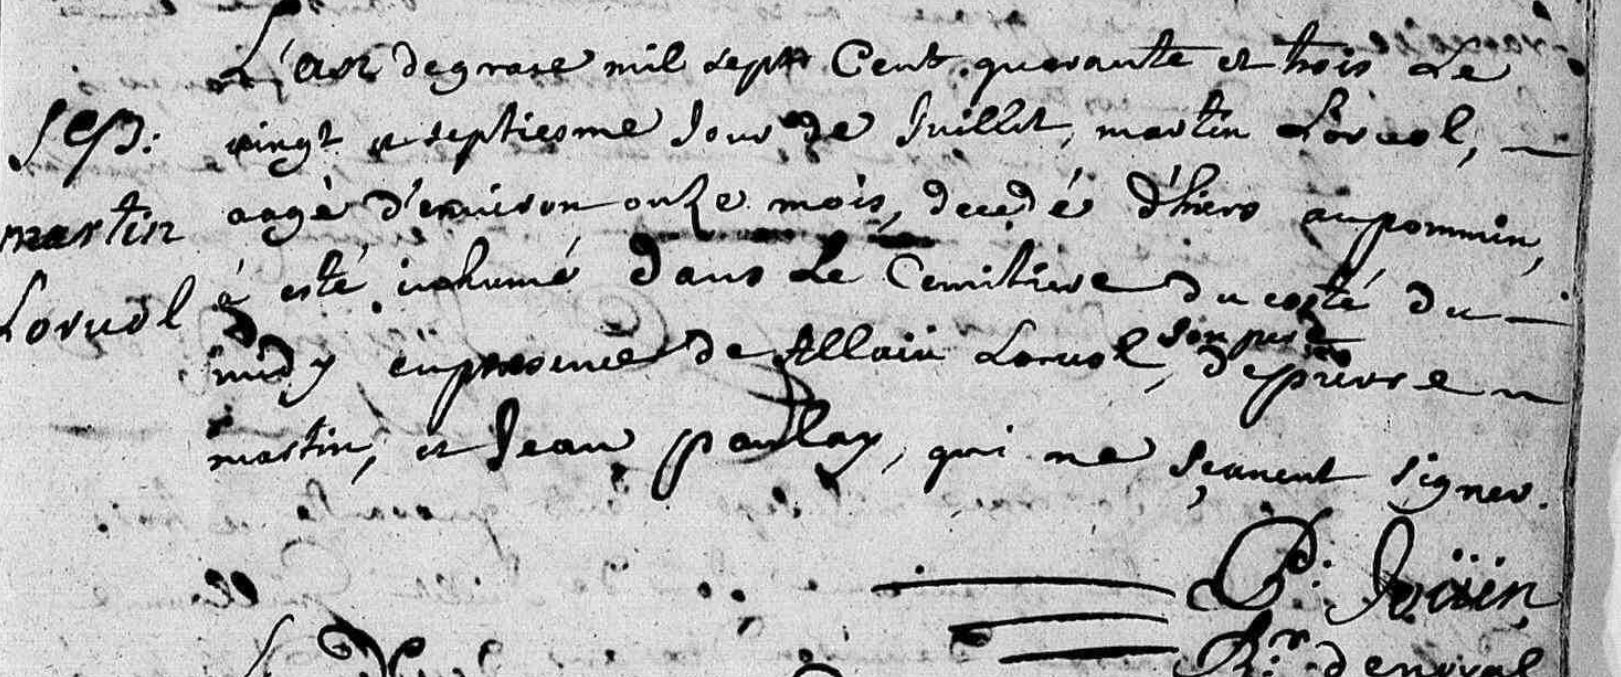 L'an degrace mil sept Cent quarante et trois Le
Sep: vingt et septiesme Jour de Juillet, martin Lorvol,
martin aagé d'environ onze mois, decedé d'hiers aupommin,
Lorvol à esté inhumé dans Le Cemitiere du costé du
midy enpresence de Allain Lorvol son pere, depierre
martin, et Jean paulay, qui ne sçauent signer.
P:
R:r d'enoval